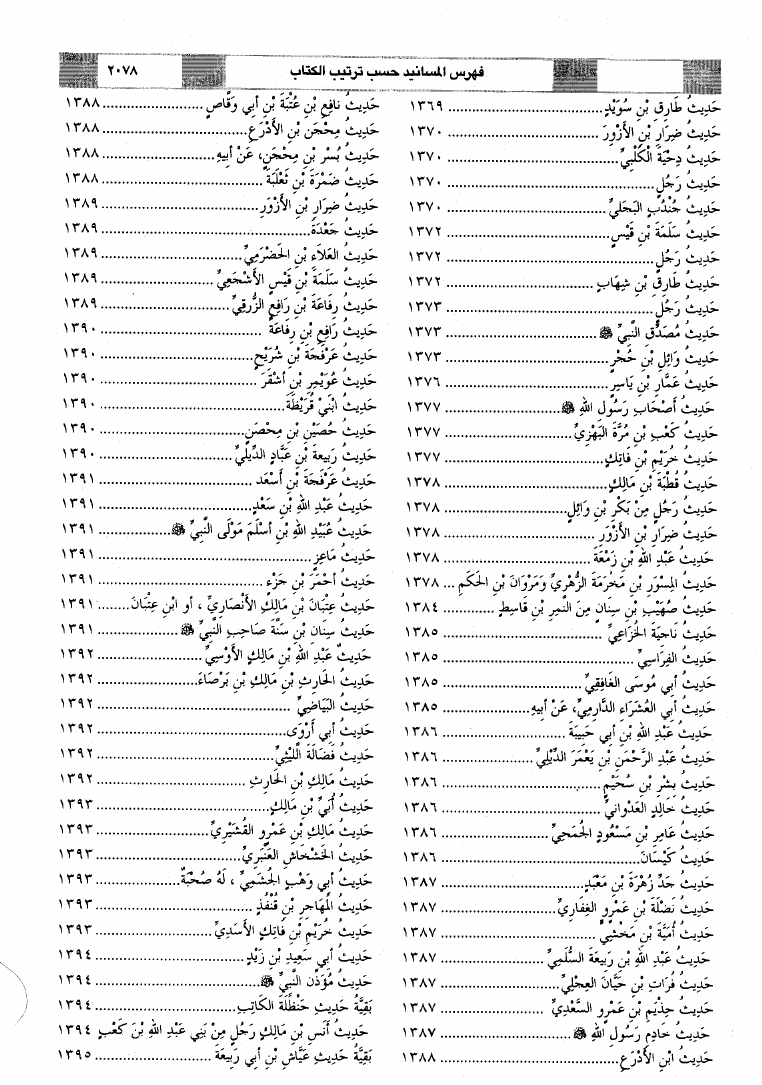 فهرس المسانيد حسب ترتيب الكتاب
٢٠٧٨
حَدِيثُ طَارِقِ بْنِ سُوَيْدٍ ١٣٦٩
حَدِيثُ ضِرَارِ بْنِ الأَزْوَرِ ١٣٧٠
حَدِيثُ دِحْيَةَ الْكَلْبِيِّ ١٣٧٠
حَدِيثُ رَجُلٍ ١٣٧٠
حَدِيثُ جُنْدُبٍ البَجَلِيِّ ١٣٧٠
حَدِيثُ سَلَمَةَ بْنِ قَيْسٍ ١٣٧٢
حَدِيثُ رَجُلٍ ١٣٧٢
حَدِيثُ طَارِقِ بْنِ شِهَابٍ ١٣٧٢
حَدِيثُ رَجُلٍ ١٣٧٣
حَدِيثُ مُصَدِّقِ النَّبِيِّ ﷺ ١٣٧٣
حَدِيثُ وَائِلِ بْنِ حُجْرٍ ١٣٧٣
حَدِيثُ عَمَّارِ بْنِ يَاسِرٍ ١٣٧٦
حَدِيثُ أَصْحَابِ رَسُولِ اللهِ ﷺ ١٣٧٧
حَدِيثُ كَعْبِ بْنِ مُرَّةَ البَهْزِيِّ ١٣٧٧
حَدِيثُ خُرَيْمِ بْنِ فَاتِكٍ ١٣٧٧
حَدِيثُ قُطْبَةَ بْنِ مَالِكٍ ١٣٧٨
حَدِيثُ رَجُلٍ مِنْ بَكْرِ بْنِ وَائِلٍ ١٣٧٨
حَدِيثُ ضِرَارِ بْنِ الأَزْوَرِ ١٣٧٨
حَدِيثُ عَبْدِ اللهِ بْنِ زَمْعَةَ ١٣٧٨
حَدِيثُ المِسْوَرِ بْنِ مَخْرَمَةَ الزُّهْرِيِّ وَمَرْوَانَ بْنِ الحَكَمِ ١٣٧٨
حَدِيثُ صُهَيْبِ بْنِ سِنَانٍ مِنَ النَّمِرِ بْنِ قَاسِطٍ ١٣٨٤
حَدِيثُ نَاجِيَةَ الخُزَاعِيِّ ١٣٨٥
حَدِيثُ الفِرَاسِيِّ ١٣٨٥
حَدِيثُ أَبِي مُوسَى الغَافِقِيِّ ١٣٨٥
حَدِيثُ أَبِي العُشَرَاءِ الدَّارِمِيِّ، عَنْ أَبِيهِ ١٣٨٥
حَدِيثُ عَبْدِ اللهِ بْنِ أَبِي حَبِيبَةَ ١٣٨٦
حَدِيثُ عَبْدِ الرَّحْمَنِ بْنِ يَعْمَرَ الدِّيْلِيِّ ١٣٨٦
حَدِيثُ بِشْرِ بْنِ سُحَيْمٍ ١٣٨٦
حَدِيثُ خَالِدٍ العَدْوَانِيِّ ١٣٨٦
حَدِيثُ عَامِرِ بْنِ مَسْعُودٍ الجُمَحِيِّ ١٣٨٦
حَدِيثُ كَيْسَانَ ١٣٨٦
حَدِيثُ جَدِّ زُهْرَةَ بْنِ مَعْبَدٍ ١٣٨٧
حَدِيثُ نَضْلَةَ بْنِ عَمْرٍو الغِفَارِيِّ ١٣٨٧
حَدِيثُ أُمَيَّةَ بْنِ مَخْشِيٍّ ١٣٨٧
حَدِيثُ عَبْدِ اللهِ بْنِ رَبِيعَةَ السُّلَمِيِّ ١٣٨٧
حَدِيثُ فُرَاتِ بْنِ حَيَّانَ العِجْلِيِّ ١٣٨٧
حَدِيثُ حِذْيَمِ بْنِ عَمْرٍو السَّعْدِيِّ ١٣٨٧
حَدِيثُ خَادِمِ رَسُولِ اللهِ ﷺ ١٣٨٧
حَدِيثُ ابْنِ الأَدْرَعِ ١٣٨٨
حَدِيثُ نَافِعِ بْنِ عُتْبَةَ بْنِ أَبِي وَقَّاصٍ ١٣٨٨
حَدِيثُ مِحْجَنِ بْنِ الأَدْرَعِ ١٣٨٨
حَدِيثُ بُسْرِ بْنِ مِحْجَنٍ، عَنْ أَبِيهِ ١٣٨٨
حَدِيثُ ضَمْرَةَ بْنِ ثَعْلَبَةَ ١٣٨٨
حَدِيثُ ضِرَارِ بْنِ الأَزْوَرِ ١٣٨٩
حَدِيثُ جَعْدَةَ ١٣٨٩
حَدِيثُ العَلَاءِ بْنِ الحَضْرَمِيِّ ١٣٨٩
حَدِيثُ سَلَمَةَ بْنِ قَيْسٍ الأَشْجَعِيِّ ١٣٨٩
حَدِيثُ رِفَاعَةَ بْنِ رَافِعٍ الزُّرَقِيِّ ١٣٨٩
حَدِيثُ رَافِعِ بْنِ رِفَاعَةَ ١٣٩٠
حَدِيثُ عَرْفَجَةَ بْنِ شُرَيْحٍ ١٣٩٠
حَدِيثُ عُوَيْمِرِ بْنِ أَشْقَرَ ١٣٩٠
حَدِيثُ ابْنَيْ قُرَيْظَةَ ١٣٩٠
حَدِيثُ حُصَيْنِ بْنِ مِحْصَنٍ ١٣٩٠
حَدِيثُ رَبِيعَةَ بْنِ عَبَّادٍ الدِّيْلِيِّ ١٣٩٠
حَدِيثُ عَرْفَجَةَ بْنِ أَسْعَدَ ١٣٩١
حَدِيثُ عَبْدِ اللهِ بْنِ سَعْدٍ ١٣٩١
حَدِيثُ عُبَيْدِ اللهِ بْنِ أَسْلَمَ مَوْلَى النَّبِيِّ ﷺ ١٣٩١
حَدِيثُ مَاعِزٍ ١٣٩١
حَدِيثُ أَحْمَرَ بْنِ جَزْءٍ ١٣٩١
حَدِيثُ عِتْبَانَ بْنِ مَالِكٍ الأَنْصَارِيِّ ، أَو ابْنِ عِتْبَانَ ١٣٩١
حَدِيثُ سِنَانِ بْنِ سَنَّةَ صَاحِبِ النَّبِيِّ ﷺ ١٣٩١
حَدِيثُ عَبْدِ اللهِ بْنِ مَالِكٍ الأَوْسِيِّ ١٣٩٢
حَدِيثُ الحَارِثِ بْنِ مَالِكِ بْنِ بَرْصَاءَ ١٣٩٢
حَدِيثُ البَيَاضِيِّ ١٣٩٢
حَدِيثُ أَبِي أَرْوَى ١٣٩٢
حَدِيثُ فَضَالَةَ اللَّيْثِيِّ ١٣٩٢
حَدِيثُ مَالِكِ بْنِ الحَارِثِ ١٣٩٢
حَدِيثُ أُبَيِّ بْنِ مَالِكٍ ١٣٩٣
حَدِيثُ مَالِكِ بْنِ عَمْرٍو القُشَيْرِيِّ ١٣٩٣
حَدِيثُ الخَشْخَاشِ العَنْبَرِيِّ ١٣٩٣
حَدِيثُ أَبِي وَهْبٍ الجُشَمِيِّ ، لَهُ صُحْبَةٌ ١٣٩٣
حَدِيثُ المُهَاجِرِ بْنِ قُنْفُذٍ ١٣٩٣
حَدِيثُ خُرَيْمِ بْنِ فَاتِكٍ الأَسَدِيِّ ١٣٩٣
حَدِيثُ أَبِي سَعِيدِ بْنِ زَيْدٍ ١٣٩٤
حَدِيثُ مُؤَذِّنِ النَّبِيِّ ﷺ ١٣٩٤
بَقِيَّةُ حَدِيثِ حَنْظَلَةَ الكَاتِبِ ١٣٩٤
حَدِيثُ أَنَسِ بْنِ مَالِكٍ رَجُلٍ مِنْ بَنِي عَبْدِ اللهِ بْنِ كَعْبٍ ١٣٩٤
بَقِيَّةُ حَدِيثِ عَيَّاشِ بْنِ أَبِي رَبِيعَةَ ١٣٩٥